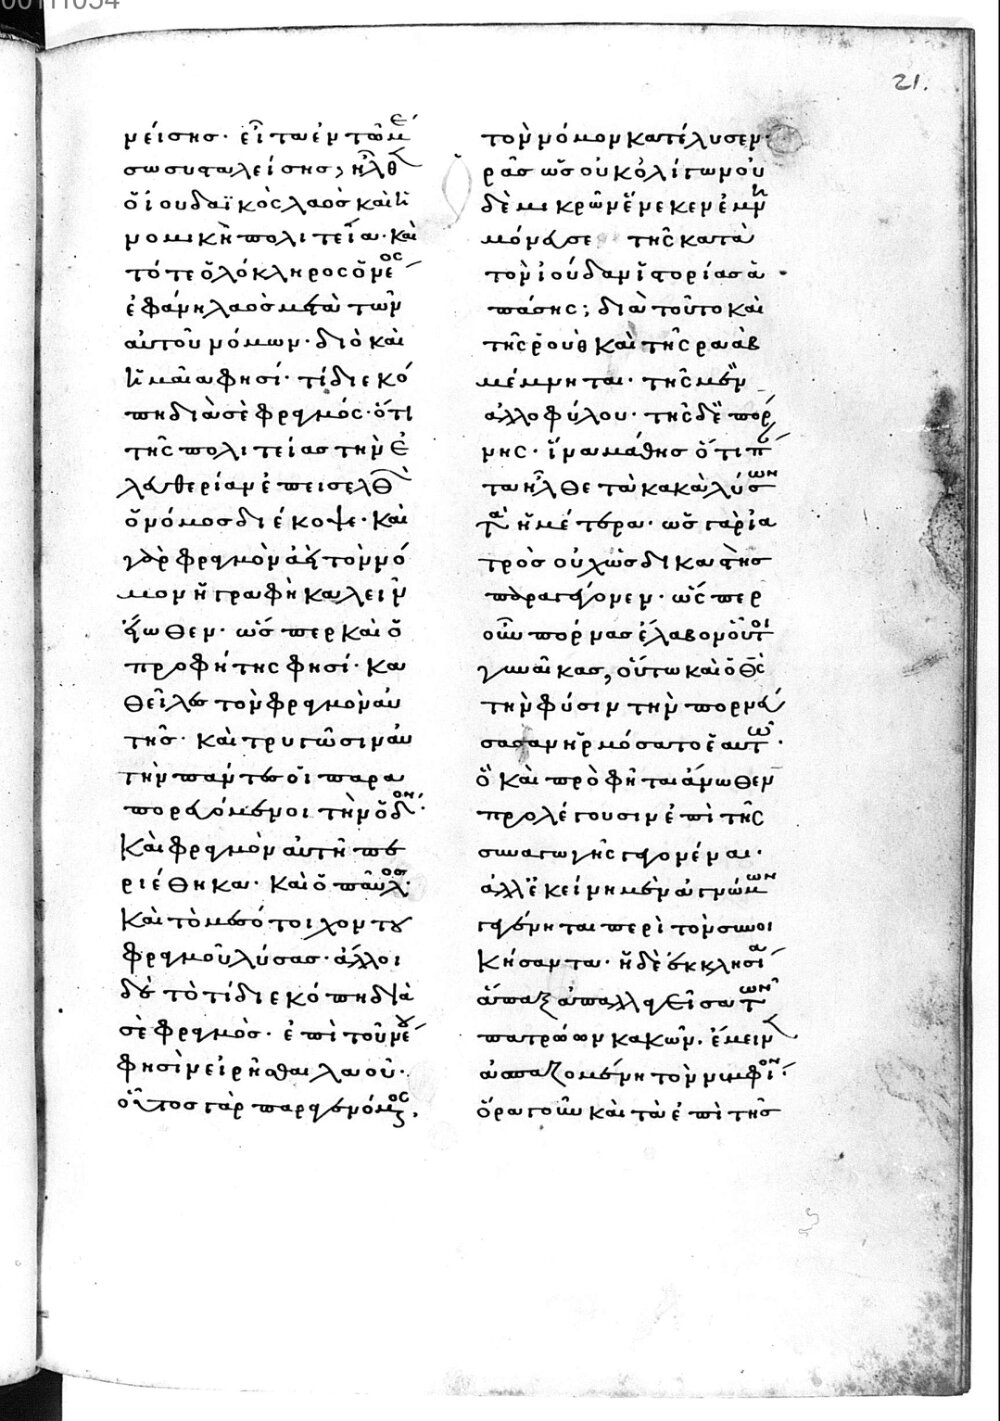 00111034
21.
νείσης· εἶτα ἐν τῷ με
σω συφαλείσης, ἦλθ
ὁ ἰουδαϊκὸς λαὸς καὶ ἡ
νομικὴ πολιτεία· καὶ
τότε ὁλόκληρος ὁ νέος
ἐφάνη λαὸς μετὰ τῶν
αὐτοῦ νόμων· διὸ καὶ
ἡ μαῖα φησί· τί διεκό
πη διὰ σὲ φραγμός· ὅτι
τῆς πολιτείας τὴν ἐ
λευθερίαν ἐπεισελθὼν
ὁ νόμος διέκοψε· καὶ
γὰρ φραγμὸν ἀεὶ τὸν νό
μον ἡ γραφὴ καλεῖν
εἴωθεν· ὥσπερ καὶ ὁ
προφήτης φησί· κα
θεῖλες τὸν φραγμὸν αὐ
τῆς· καὶ τρυγῶσιν αὐ
τὴν πάντες οἱ παρα
πορευόμενοι τὴν ὁδόν·
καὶ φραγμὸν αὐτῇ πε
ριέθηκα· καὶ ὁ παῦλος·
καὶ τὸ μεσότοιχον του
φραγμοῦ λύσας· ἄλλοι
δὲ τὸ τί διεκόπη διὰ
σὲ φραγμὸς· ἐπὶ τοῦ νέου
φησὶν εἰρῆσθαι λαοῦ·
οὗτος γὰρ παραγενόμενος,
τὸν νόμον κατέλυσεν·
ρᾶς ὡς οὐκ ὀλίγων οὐ
δὲ μικρῶν ἕνεκεν ἐμνη
μόνευσε τῆς κατὰ
τὸν ἰούδαν ἱστορίας ἁ
πάσης; διὰ τοῦτο καὶ
τῆς ῥοὺθ καὶ τῆς ραὰβ
μέμνηται· τῆς μὲν
ἀλλοφύλου· τῆς δὲ πόρ
νης· ἵνα μάθης ὅτι πάν
τα ἦλθε τὰ κακὰ λύσων
τὰ ἡμέτερα· ὡς γὰρ ἰα
τρὸς οὐχ ὡς δικαστὴς
παραγέγονεν· ὥσπερ
οὖν πόρνας ἔλαβον οὗτοι
γυναῖκας, οὕτω καὶ ὁ θς
τὴν φύσιν τὴν πορνεύ
σασαν ἡρμόσατο ἑαυτῶ·
ὃ καὶ προφῆται ἄνωθεν
προλέγουσιν ἐπὶ τῆς
συναγωγῆς γεγονέναι·
ἀλλ' ἐκείνη μὲν ἀγνώμων
γεγένηται περὶ τὸν συνοι
κήσαντα· ἡ δὲ ἐκκλησία
ἅπαξ ἀπαλλαγεῖσα τῶν
πατρώων κακῶν, ἔμεινεν
ἀσπαζομένη τὸν νυμφίον·
ὅρα γοῦν καὶ τὰ ἐπὶ τῆς